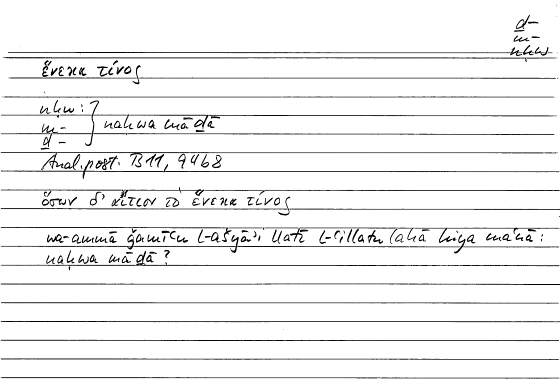 d̲-
m-
nḥw
ἕνεκα τίνος
nḥw:
m- } naḥwa mād̲ā
d̲-
Anal. post. B11, 94b8
ὅσων δ' αἴτιον τὸ ἕνεκα τίνος
wa-ammā ǧamīʿu l-ašyāʾi llatī l-ʿillatu lahā hiya maʿnā:
naḥwa mād̲ā?